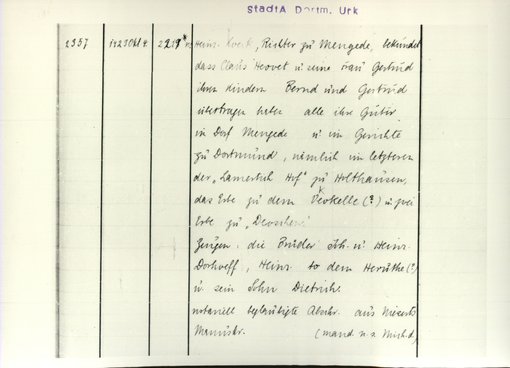 StadtA Dortm. Urk
2357 1423 Okt 4. Heinr. Kverk, Richter zu Mengede, bekundet
dass Claus Hovet u seine Frau Gertrud
ihren Kindern Bernd und Gertrud
übertragen haben alle ihre Güter
in Dorf Mengede u im Gerichte
zu Dortmund, nämlich im letzteren
der „Lamertich Hof" zu Holthausen,
das Erbe zu dem Verkelle (?) u zwei
Erbe zu „
Zeugen: die Brüder Joh. u Heinr.
Heinr. to dem Heruthe (?)
u. sein Sohn Dietrich.
notariell beglaubigte Abschr. aus
Manuskr. (mand n.s.